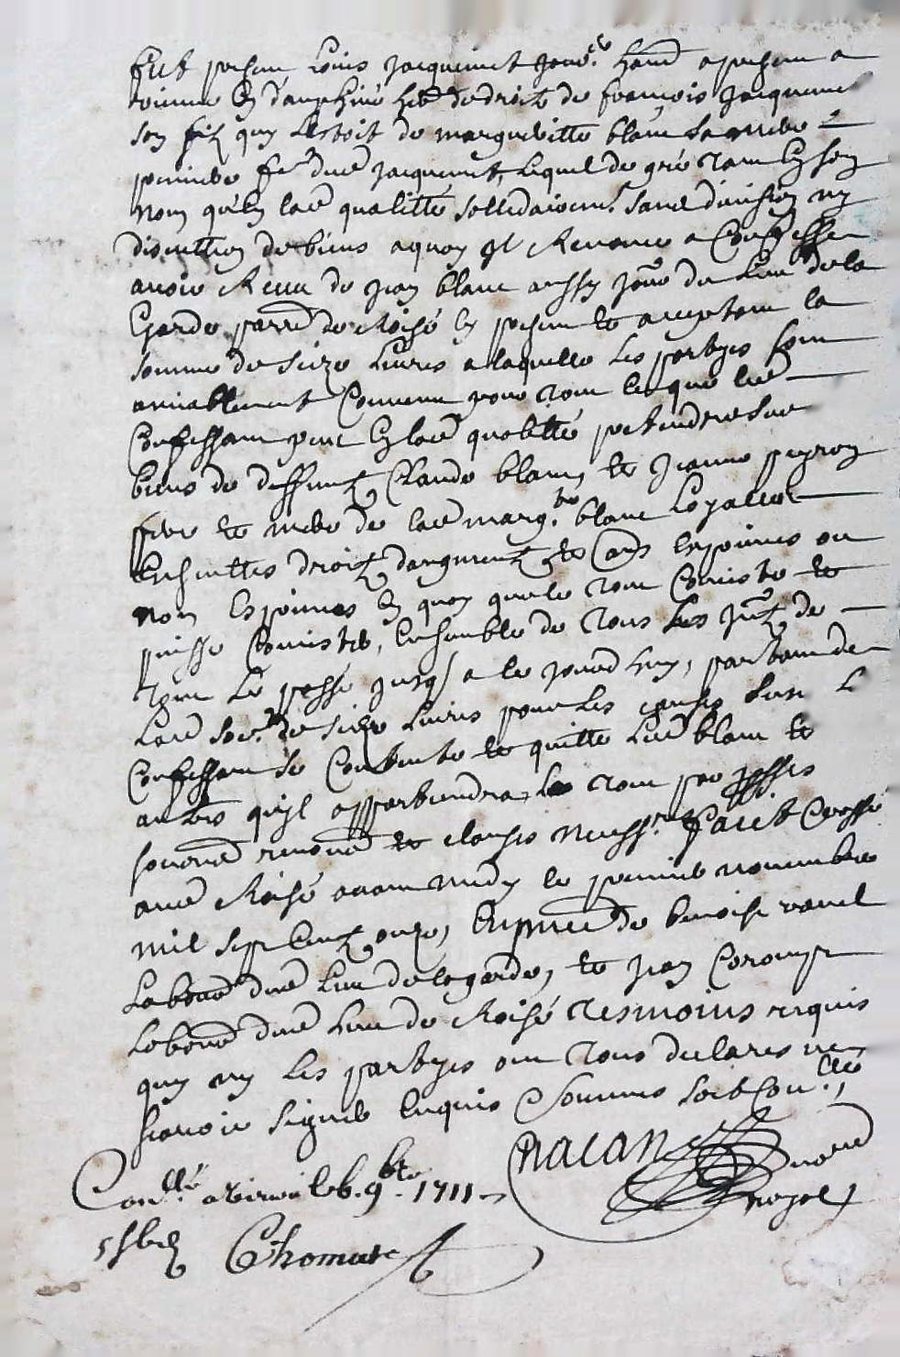 fut present Louis Jacquemet jour.er habt a present a
vienne en dauphiné het de droit de françois Jacquemet
son filz qui l'estoit de margueritte blanc sa mere
premiere fe dud Jacquemet, lequel de gré tant en son
nom qu'en lade qualitté sollidairemt sans division ny
discution de biens a quoy il Renonce a Confesse
avoir Receu de jean blanc aussy jour du Lieu de la
Garde parre de Roisé en present et acceptant la
somme de seize Livres a laquelle les partyes sont
amiablement Convenu pour tout ce que led
Confessant peut en lade qualitté pretendre sur
biens de deffuntz Claude blanc, et jeanne peyron
pere et mere de lade marg.tte blanc Legalle
ensuittes droitz daugmentz et Cas exprimes ou
non exprimes en quoy que le tout Consiste et
puisse Consister, ensemble de tous les jntz de
tout le passé jusq a ce jourdhuy, partant de
Lade som. de seize Livres pour les causes susd L
Confessant se Contente et quitte Led blanc et
autres qu'il appartiendra, le tout par
serment renond et clauses necess.r faict et passé
aud Roisé avant midy le premier novembre
mil sept Centz onze, en pnce de benoist ravel
Labour dud Lieu de la garde, et jean
Labour dud Lieu de Roisé tesmoins requis
quy ny les partyes ont tous declares ne
scavoir signer enquis et sommes soit Con.llé
nacan nore
royal
Con.llé a virieu le 6. 9bre 1711
Chomat